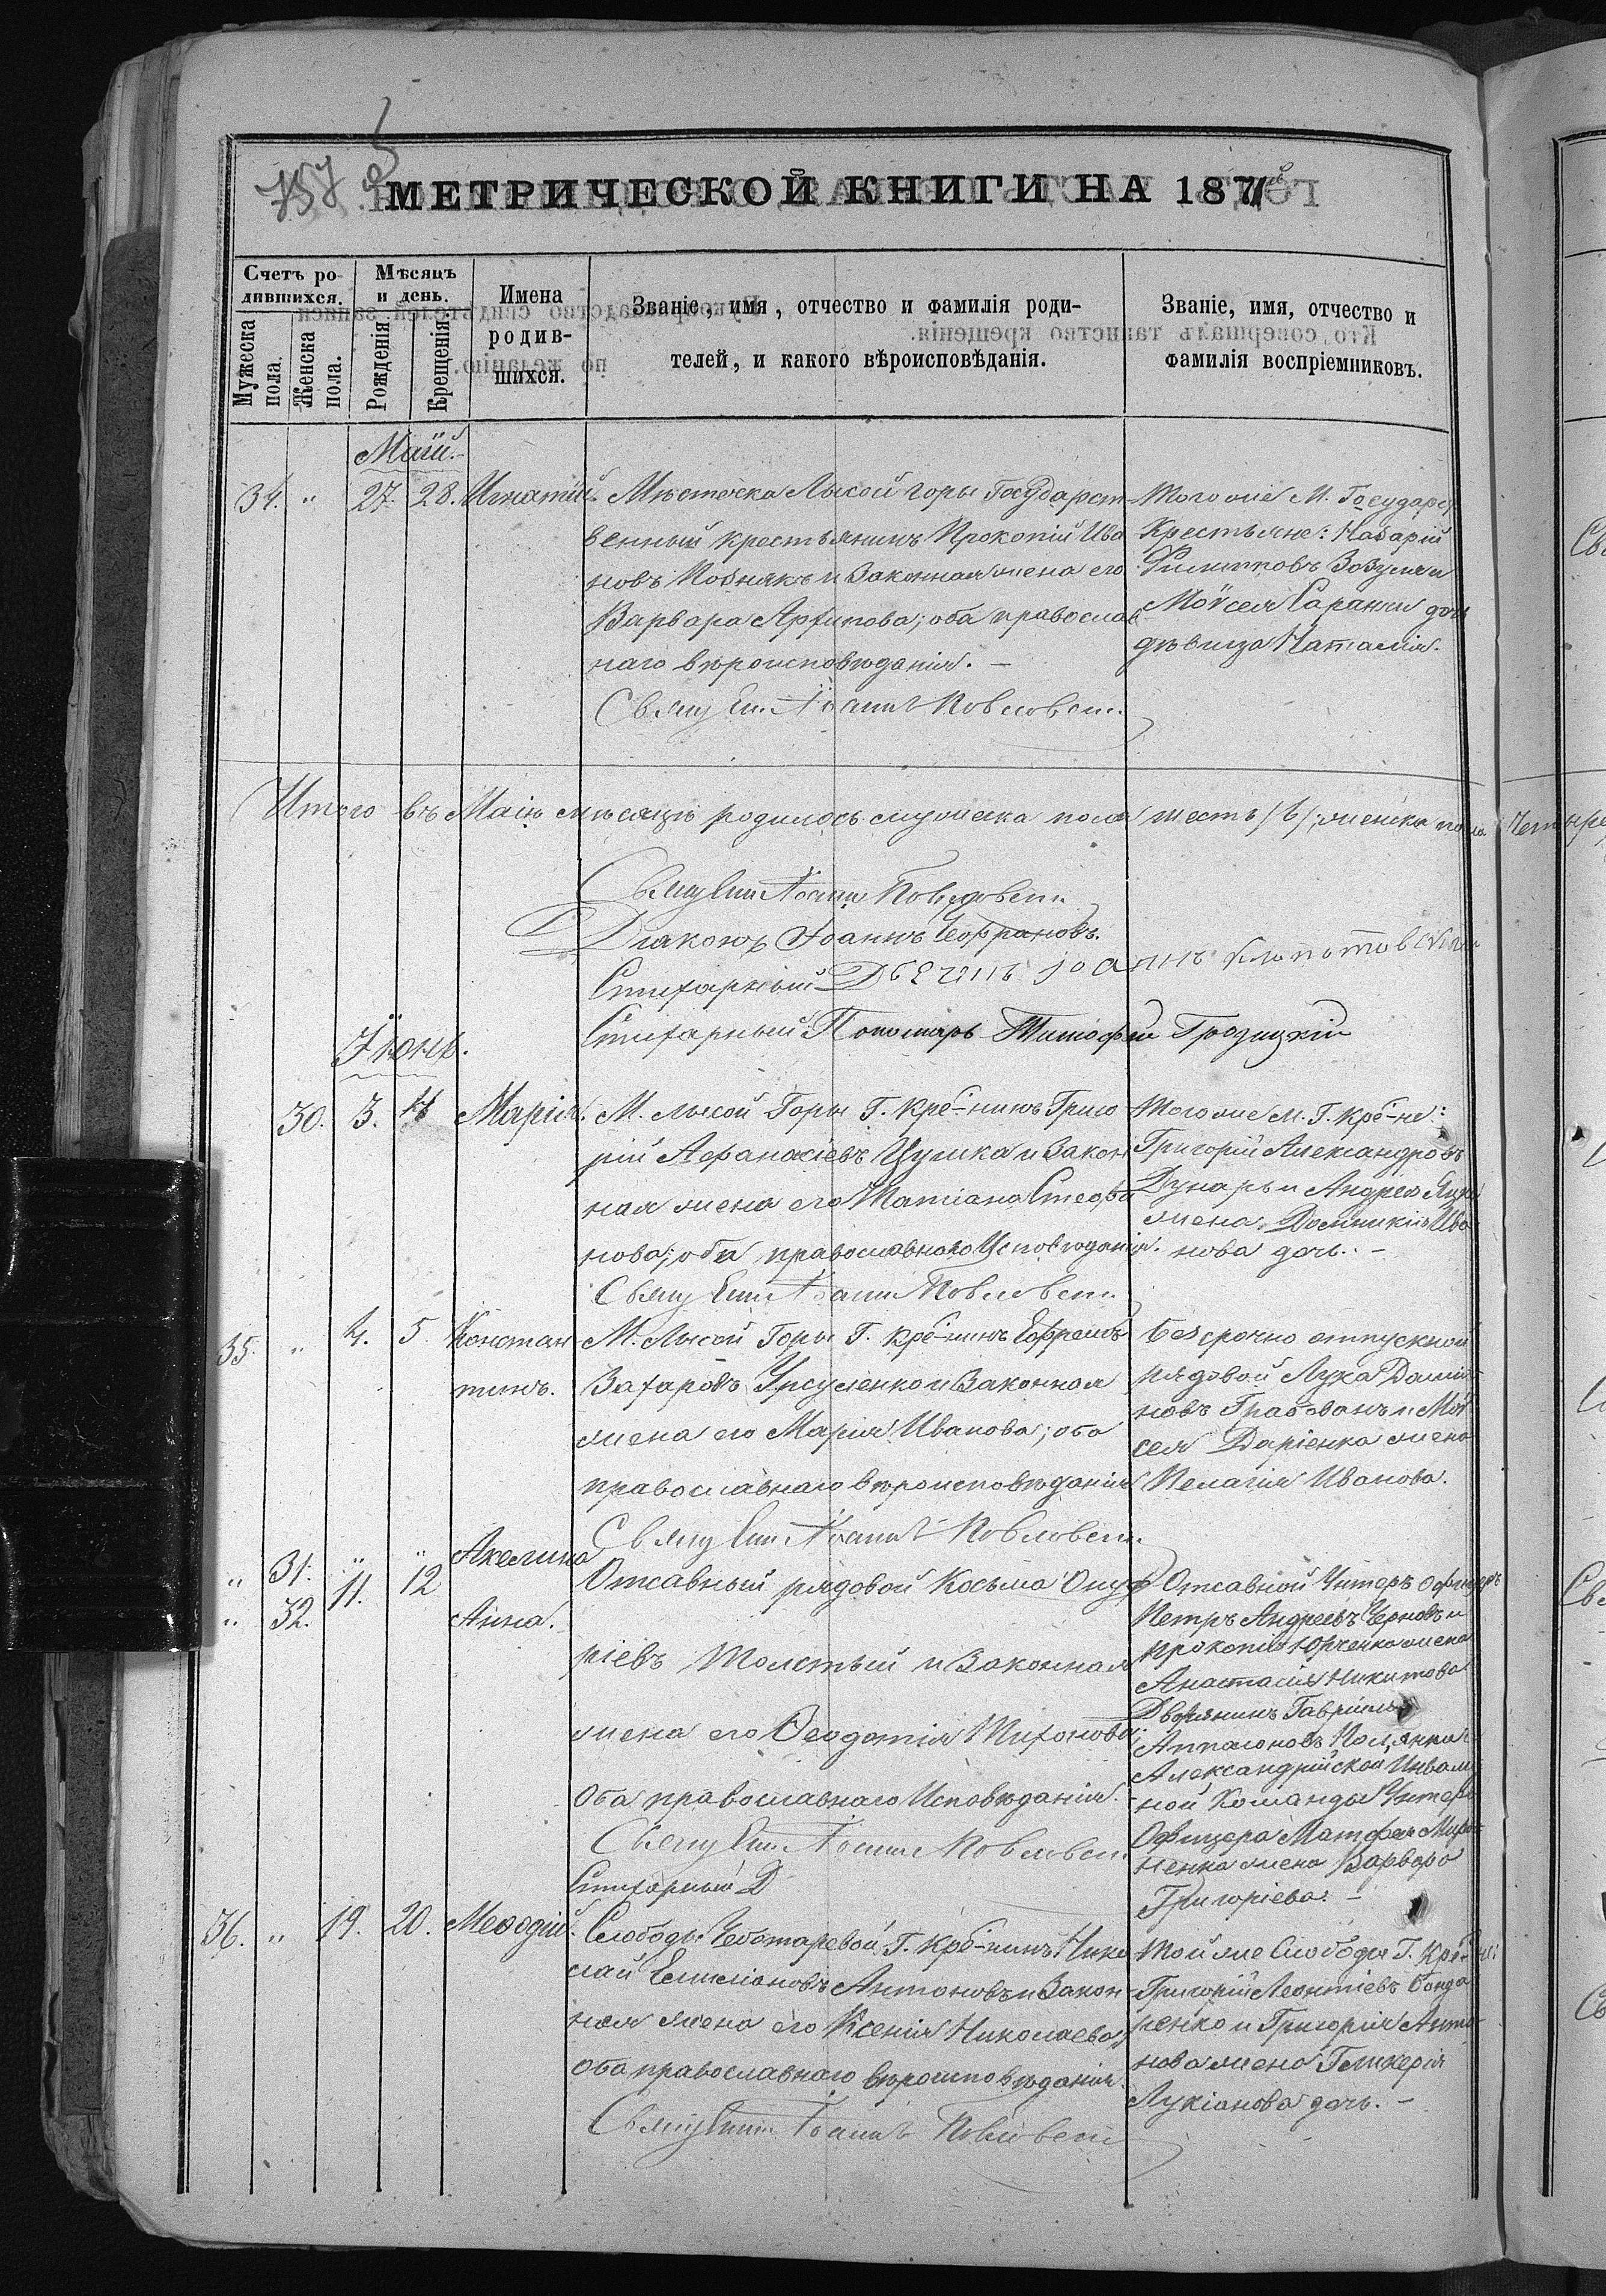 757
МЕТРИЧЕСКОЙ КНИГИ НА 1871
Счетъ ро-
дившихся.
Мужеска пола.
Женска пола.
Мѣсяцъ
и день.
Рожденія
Крещенія.
Имена
родив-
шихся.
Званіе, имя, отчество и фамилія роди-
телей, и какого вѣроисповѣданія.
Званіе, имя, отчество и
фамилія воспріемниковъ.
Маій.
34. " 27. 28. Игнатій.
Мѣстечка Лысой горы Государст
венный крестьянинъ Прокопій Ива
новъ Позднякъ и Законная жена его
Варвара Архипова; оба православ
наго вѣроисповѣданія. –
Священ. Іоаннъ
Того же М. Государс.
Крестьяне: Назарій
Филиповъ Зозуля и
Моѵсея Саранчи дочь
дѣвица Наталія.
Итого въ Маіѣ мѣсяцѣ родилось мужеска пола шесть /6/, женска пола четыре
Священ Іоаннъ
Діаконъ Іоаннъ
Стихарный Дьячекъ Іоаннъ
Стихарный Пономарь Тимофей Грозицкій
Іюнь.
30. 3. 4 Марія.
М. Лысой Горы Г. Кре-нинъ Григо
рій Афанасіевъ Цушка и Закон
ная жена его Татіана Стефа
нова; оба православнаго Исповѣданія.
Священ Іоаннъ
Того же М. Г. Кре-не:
Григорій Александровъ
Дунарь и Андрея Яцы
жена Домникія Ива
нова дочь. –
35. " 4. 5. Констан
тинъ.
М. Лысой Горы Г. Кре-нинъ Ефремъ
Захаровъ Урсуленко и Законная
жена его Марія Иванова; оба
православнаго вѣроисповѣданія
Священ Іоаннъ
Безсрочно отпускной
рядовой Лука Даміа
новъ Грабованъ и Мой
сея Даріенка жена
Пелагія Иванова.
" 31. " " Акелина
" 32. 11. 12 Анна.
Отсавный рядовой Косьма Онуф
ріевъ Толстый и Законная
жена его Ѳеодотія Тихонова;
Оба православнаго Исповѣданія.
Священ. Іоаннъ
Стихарный Д
Отсавной Унтеръ Офицеръ
Петръ Андреевъ Черновъ и
Прокопія Юрченко жена
Анастасія Никитова
Дворянинъ Гавріилъ
Апполоновъ
Александрійской Инвалид
ной Команды Унтеръ
Офицера Матфея Миро
ненка жена Варвара
Григоріева. –
36. " 19. 20. Меѳодій.
Слободы Чеботаревой Г. Кре-нинъ Нико
лай Емиліановъ Антоновъ и Закон
ная жена его Ксенія Николаева;
Оба православнаго вѣроисповѣданія.
Священ Іоаннъ
Той же Слободы Г. Кре-не:
Григорій Леонтіевъ Бонда
ренко и Григорія Анто
нова жена Гликерія
Лукіанова дочь. –